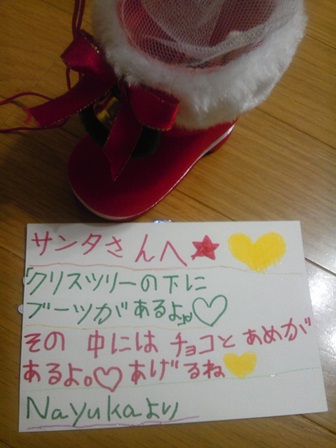 サンタさんへ★♡
「クリスツリーの下に
ブーツがあるよ♪♡
その中にはチョコとあめが
あるよ。♡あげるね♡
Nayukaより